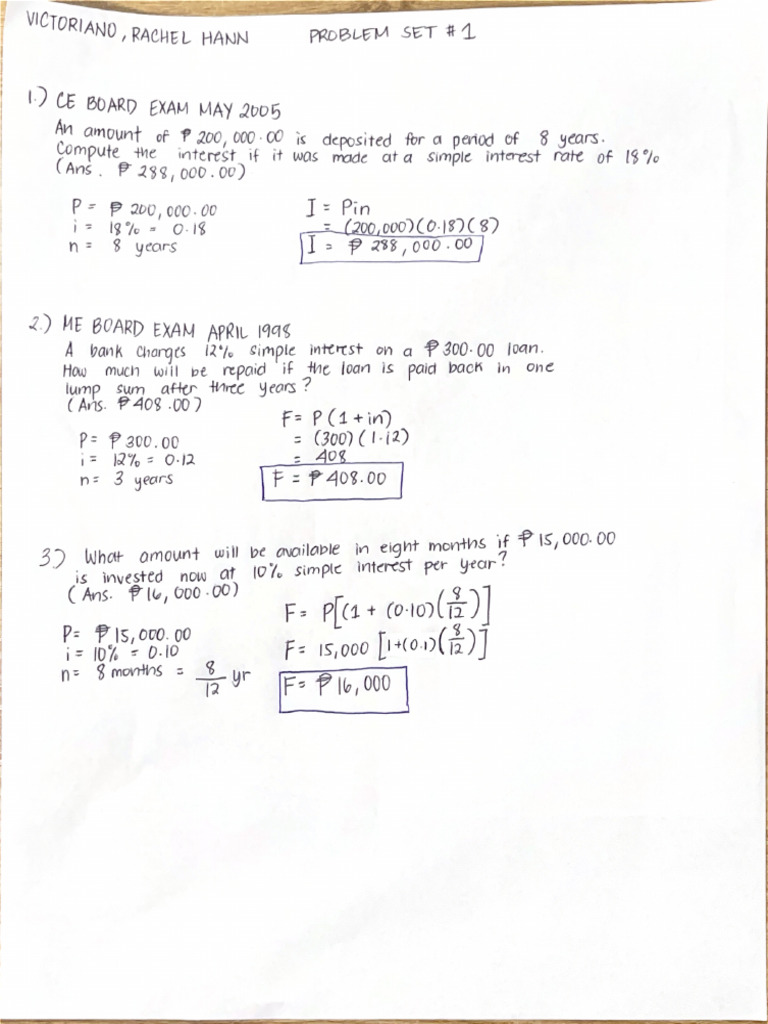 VICTORIANO, RACHEL HANN PROBLEM SET #1
1.) CE BOARD EXAM MAY 2005
An amount of ₱ 200,000.00 is deposited for a period of 8 years.
Compute the interest if it was made at a simple interest rate of 18%
(Ans. ₱ 288,000.00)
P = ₱ 200,000.00
i = 18% = 0.18
n = 8 years
I = Pin
= (200,000)(0.18)(8)
I = ₱ 288,000.00
2.) ME BOARD EXAM APRIL 1998
A bank charges 12% simple interest on a ₱300.00 loan.
How much will be repaid if the loan is paid back in one
lump sum after three years?
(Ans. ₱408.00)
P = ₱300.00
i = 12% = 0.12
n = 3 years
F = P(1+in)
= (300)(1.12)
= 408
F = ₱408.00
3) What amount will be available in eight months if ₱15,000.00
is invested now at 10% simple interest per year?
(Ans. ₱16,000.00)
P = ₱15,000.00
i = 10% = 0.10
n = 8 months = 8/12 yr
F = P[(1 + (0.10)(8/12)]
F = 15,000 [1+(0.1)(8/12)]
F = ₱16,000